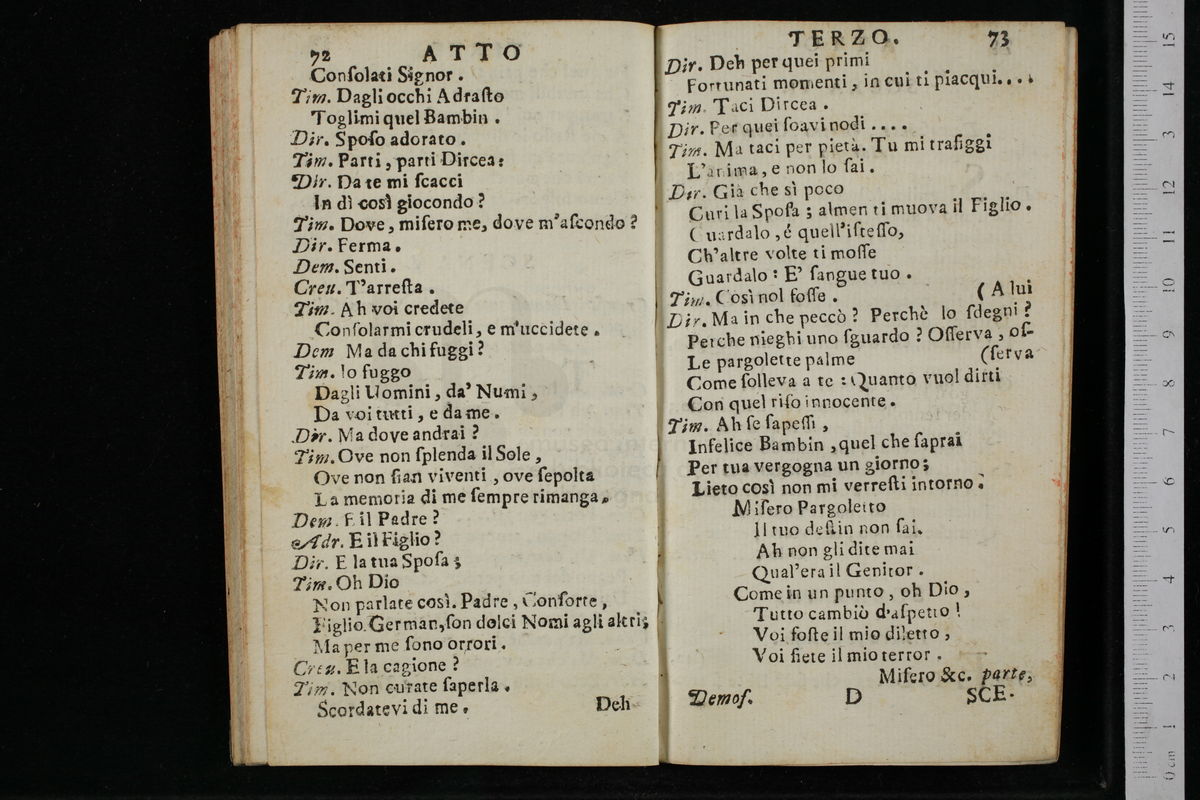 72 ATTO
Conſolati Signor.
Tim. Dagli occhi Adraſto
Toglimi quel Bambin.
Dir. Spoſo adorato.
Tim. Parti, parti Dircea:
Dir. Da te mi ſcacci
In dì così giocondo?
Tim. Dove, miſero me, dove m'aſcondo?
Dir. Ferma.
Dem. Senti.
Creu. T'arreſta.
Tim. Ah voi credete
Conſolarmi crudeli, e m'uccidete.
Dem Ma da chi fuggi?
Tim. Io fuggo
Dagli Uomini, da' Numi,
Da voi tutti, e da me.
Dir. Ma dove andrai?
Tim. Ove non ſplenda il Sole,
Ove non ſian viventi, ove ſepolta
La memoria di me ſempre rimanga.
Dem. E il Padre?
Adr. E il Figlio?
Dir. E la tua Spoſa;
Tim. Oh Dio
Non parlate così. Padre, Conſorte,
Figlio German, ſon dolci Nomi agli altri;
Ma per me ſono orrori.
Creu. E la cagione?
Tim. Non curate ſaperla.
Scordatevi di me.
Deh
TERZO. 73
Dir. Deh per quei primi
Fortunati momenti, in cui ti piacqui....
Tim. Taci Dircea.
Dir. Per quei ſoavi nodi....
Tim. Ma taci per pietà. Tu mi trafiggi
L'anima, e non lo ſai.
Dir. Già che sì poco
Curi la Spoſa; almen ti muova il Figlio.
Guardalo, é quell'iſteſſo,
Ch'altre volte ti moſſe
Guardalo: E' ſangue tuo.
Tim. Così nol foſſe. (A lui
Dir. Ma in che peccò? Perchè lo ſdegni?
Perche nieghi uno ſguardo? Oſſerva, oſ-
Le pargolette palme (ſerva
Come ſolleva a te: Quanto vuol dirti
Con quel riſo innocente.
Tim. Ah ſe ſapeſſi,
Infelice Bambin, quel che ſaprai
Per tua vergogna un giorno;
Lieto così non mi verreſti intorno.
Miſero Pargoletto
Il tuo deſtin non ſai.
Ah non gli dite mai
Qual'era il Genitor.
Come in un punto, oh Dio,
Tutto cambiò d'aſpetto!
Voi foſte il mio diletto,
Voi ſiete il mio terror.
Miſero &c. parte,
Demoſ. D SCE-
15
14
13
12
11
10
9
8
7
6
5
4
3
2
1
0 cm